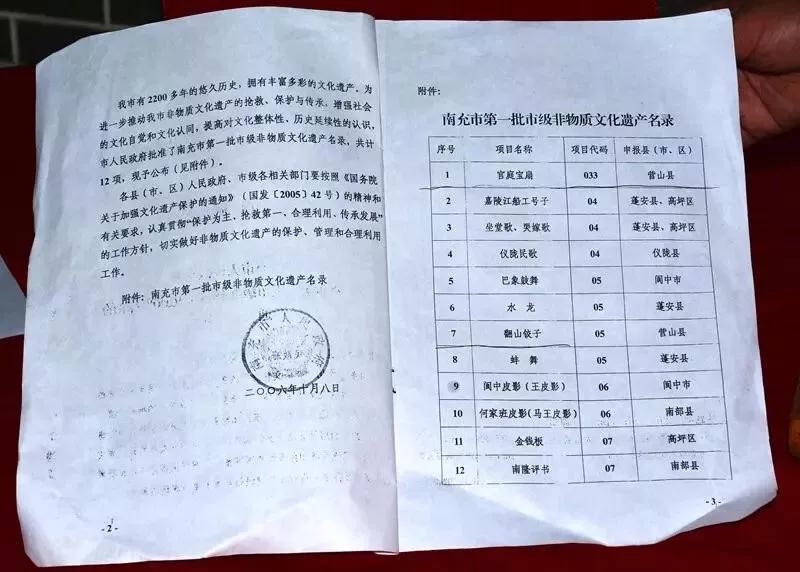 我市有2200多年的悠久历史，拥有丰富多彩的文化遗产。为
进一步推动我市非物质文化遗产的抢救、保护与传承，增强社会
的文化自觉和文化认同，提高对文化整体性、历史延续性的认识，
市人民政府批准了南充市第一批市级非物质文化遗产名录，共计
12项，现予公布（见附件）。
各县（市、区）人民政府、市级各相关部门要按照《国务院
关于加强文化遗产保护的通知》（国发〔2005〕42号）的精神和
有关要求，认真贯彻“保护为主、抢救第一、合理利用、传承发展”
的工作方针，切实做好非物质文化遗产的保护、管理和合理利用
工作。
附件：南充市第一批市级非物质文化遗产名录
南充市人民政府
二〇〇六年十月八日
- 2 -
附件：
南充市第一批市级非物质文化遗产名录
序号 项目名称 项目代码 申报县（市、区）
1 官庭宝扇 033 营山县
2 嘉陵江船工号子 04 蓬安县、高坪区
3 坐堂歌、哭嫁歌 04 蓬安县、高坪区
4 仪陇民歌 04 仪陇县
5 巴象鼓舞 05 阆中市
6 水龙 05 蓬安县
7 翻山铰子 05 营山县
8 蚌舞 05 蓬安县
9 阆中皮影（王皮影） 06 阆中市
10 何家班皮影（马王皮影） 06 南部县
11 金钱板 07 高坪区
12 南隆评书 07 南部县
- 3 -